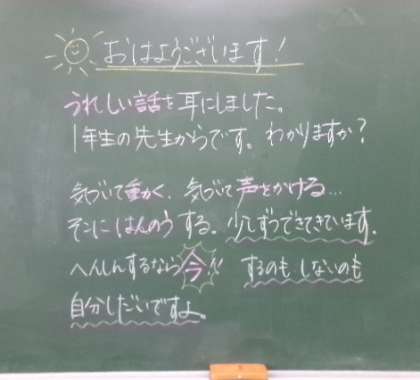 おはようございます!
うれしい話を耳にしました。
1年生の先生からです。わかりますか?
気づいて動かく、気づいて声をかける...
そこにはんのうする。少しずつできています。
へんしんするなら今!! するのもしないのも
自分しだいですよ。